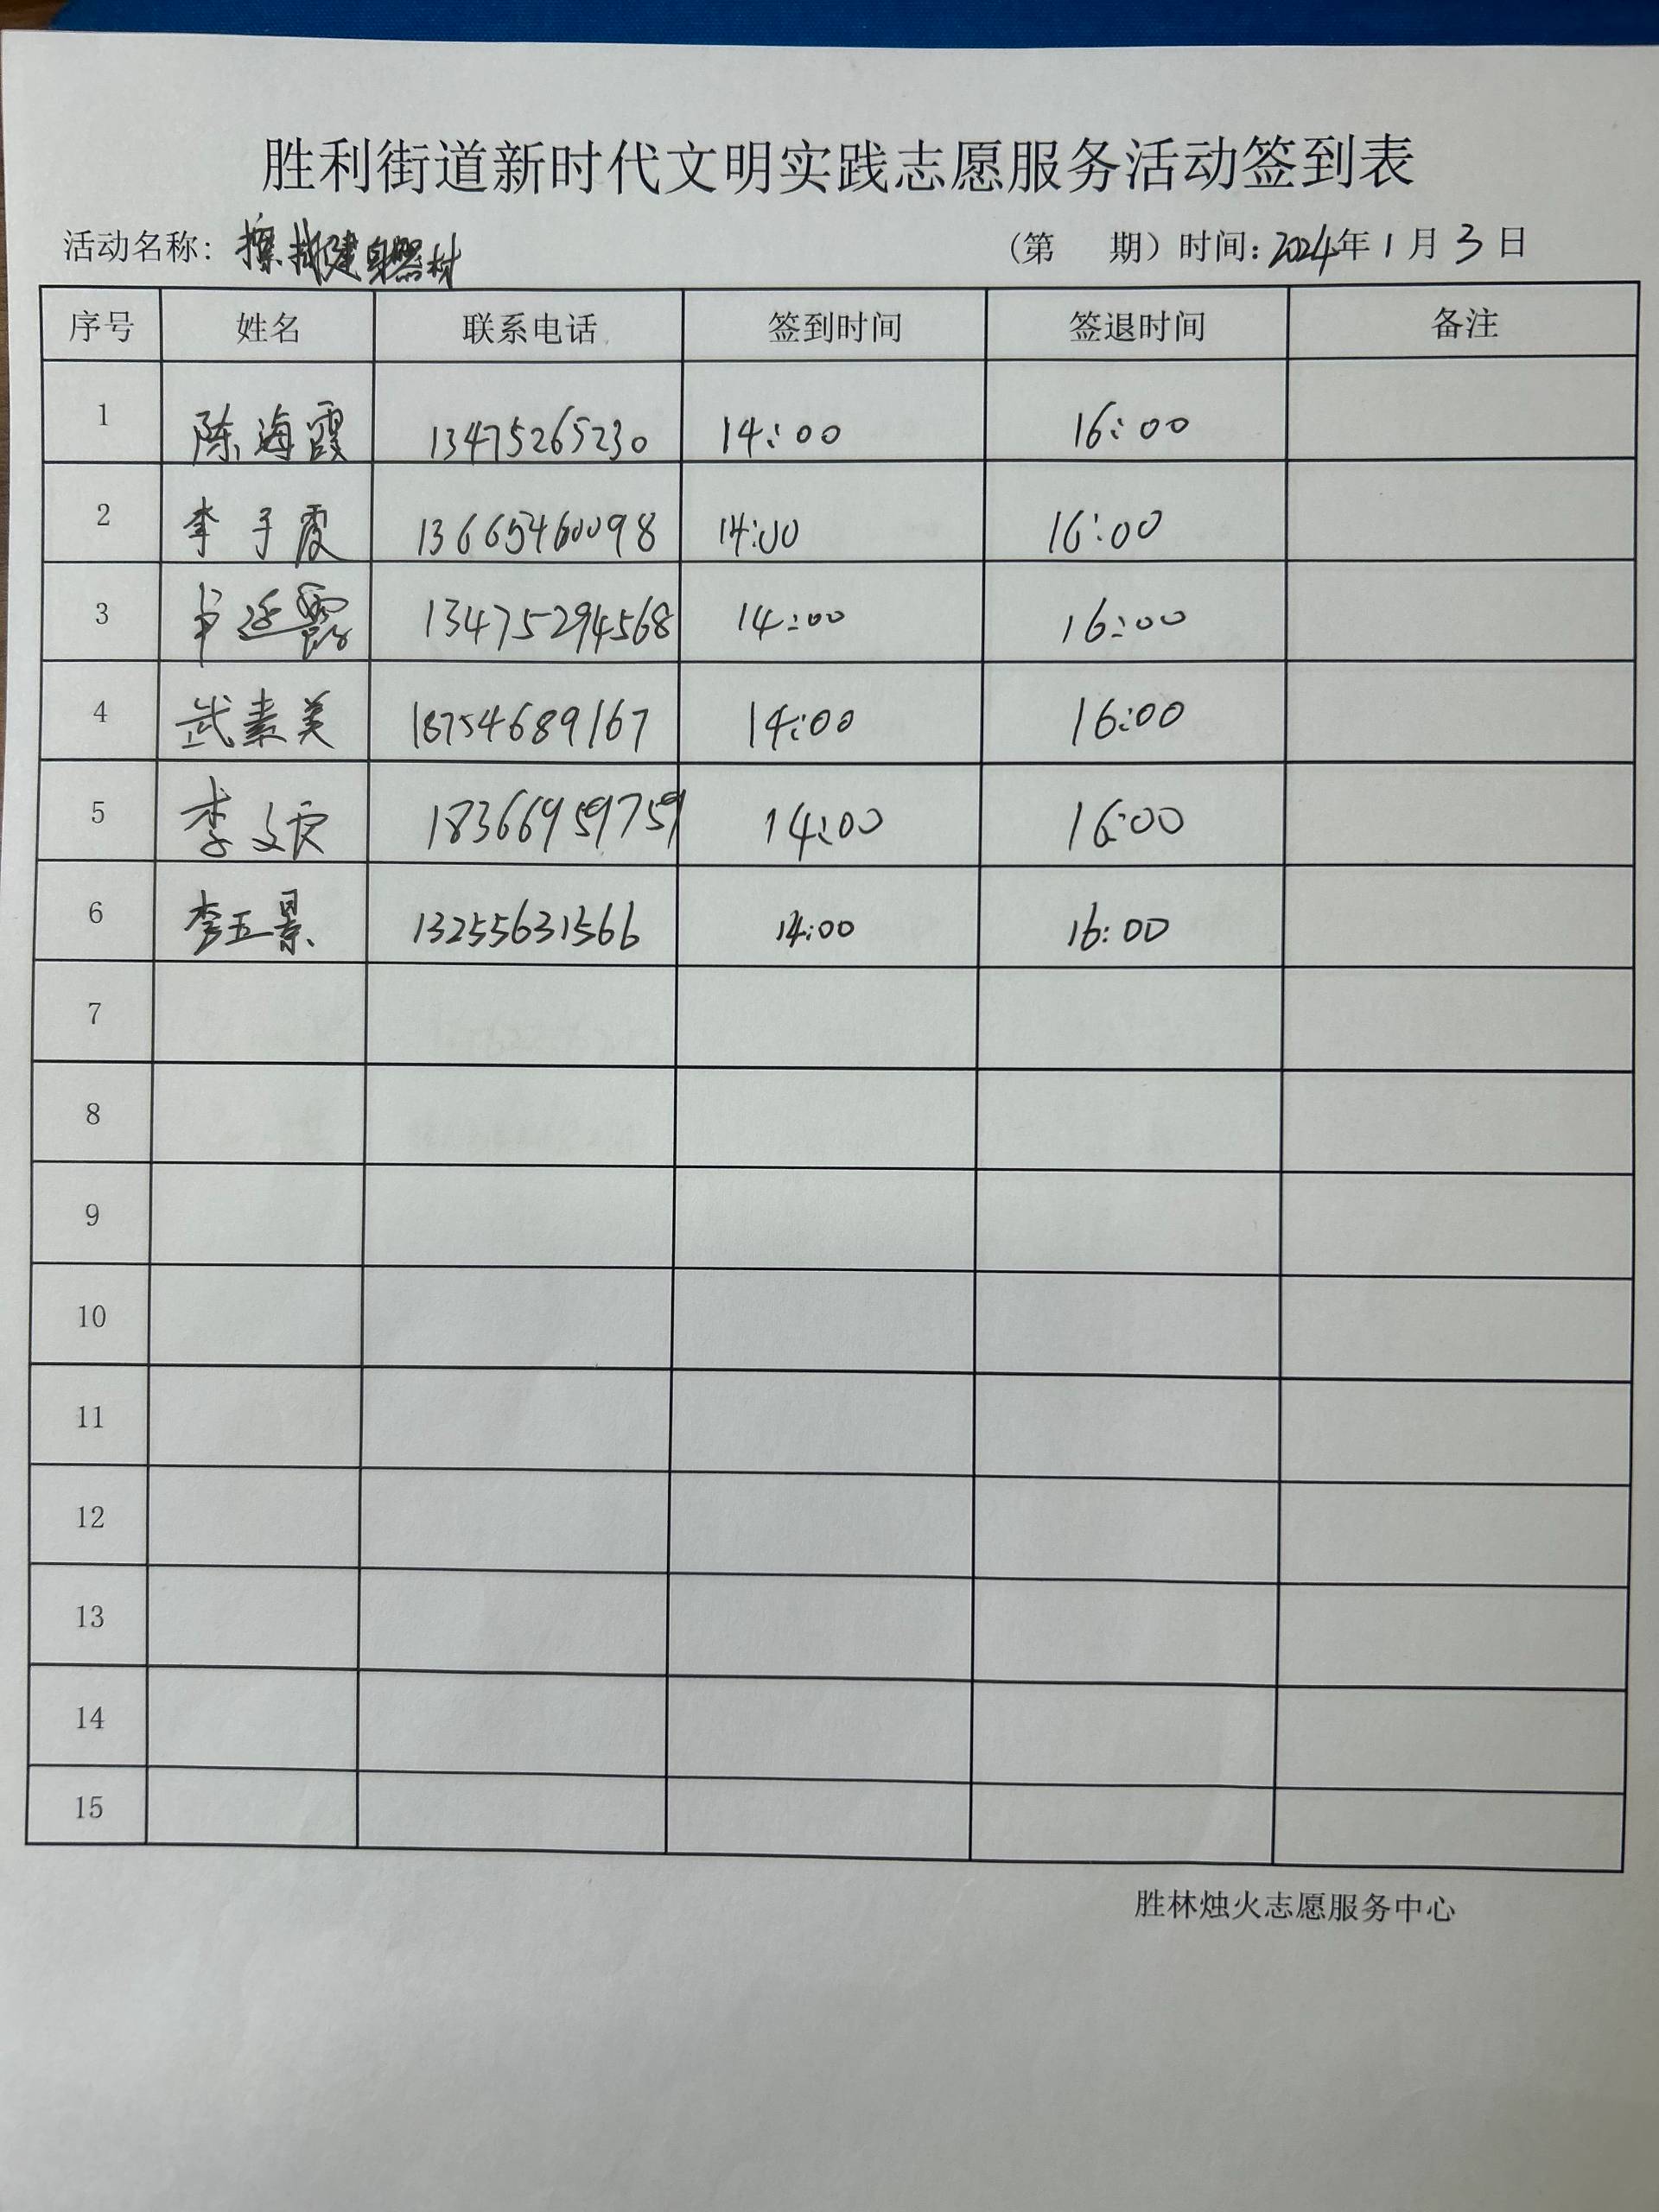 胜利街道新时代文明实践志愿服务活动签到表
活动名称: 擦拭健身器材 (第 期) 时间: 2024年1月3日
序号 姓名 联系电话 签到时间 签退时间 备注
1 陈海霞 13475265230 14:00 16:00
2 李于霞 13665460098 14:00 16:00
3 13475294568 14:00 16:00
4 武素美 18754689167 14:00 16:00
5 李 18366959759 14:00 16:00
6 李五景 13255631566 14:00 16:00
7
8
9
10
11
12
13
14
15
胜林烛火志愿服务中心